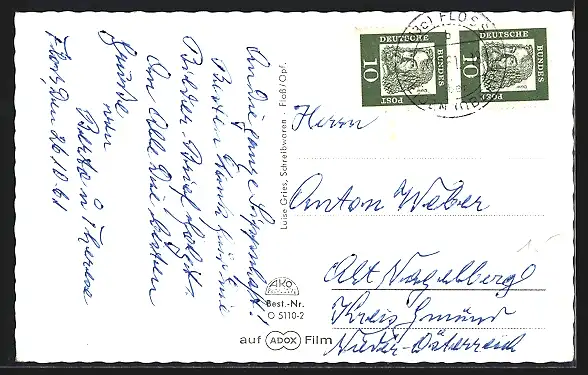 An die ganze Sippschaft!
Besten Dank für die
Bilder. Brief folgt.
An Alle die besten
Grüße
von
Berta u Therese
Floß, den 26.10.61
Luise Gries, Schreibwaren - Floß/Opf.
AKO
Best.-Nr.
O 5110-2
auf ADOX Film
DEUTSCHE
BUNDES
POST
10
DEUTSCHE
BUNDES
POST
10
FLOSS
Herrn
Anton Weber
Alt Nagelberg
Kreis Gmünd
Nieder-Österreich